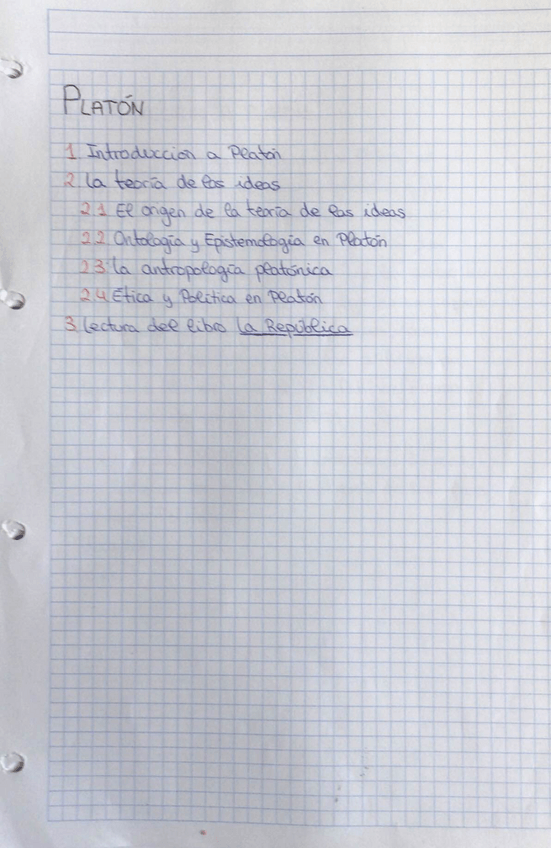 PLATÓN
1 Introducción a Platón
2 La teoría de las ideas
2.1 El origen de la teoría de las ideas
2.2 Ontología y Epistemología en Platón
2.3 La antropología platónica
2.4 Ética y Política en Platón
3 Lectura del libro La República